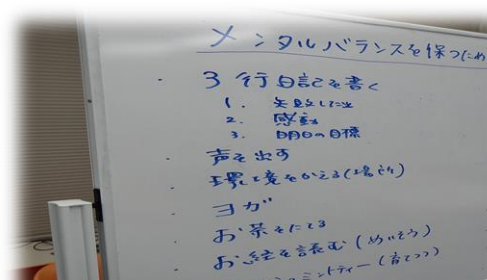 メンタルバランスを保つため
・ 3行日記を書く
1. 失敗した
2. 感動
3. 明日の目標
・ 声を出す
・ 環境をかえる(場所)
・ ヨガ
・ お茶をたてる
・ お経を読む(めいそう)
ミントティー(育てつつ)